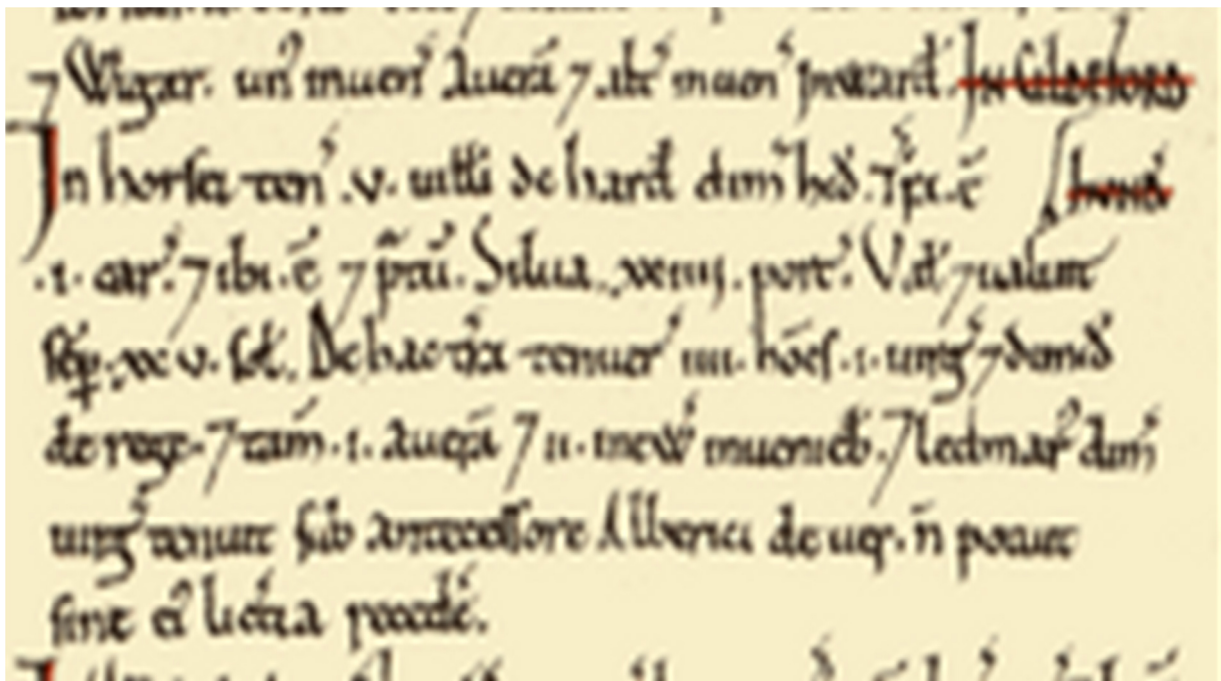 ⁊ Wigar. un᾽ inuen᾽ auerā ⁊ .iii. inuen᾽ inward᾽. In Cildeford
In horsei ten᾽ .v. uilli de hard᾽ dim᾽ hid᾽. ⁊ p̄t. ē hund᾽
.i. car᾽. ⁊ ibi .ē ⁊ p̄tū. Silua .xxiiii. porc᾽. V.at ⁊ ualuit
sēp. xx v. sol᾽. De hac t᾽ra tenuer᾽ iiii. hōes .i. uirg᾽ ⁊ dimid᾽
de rege. ⁊ tam᾽ .i. auerā ⁊ ii. inew᾽ inuenieb᾽. ⁊ ledmar᾽ dim᾽
uirg᾽ tenuit sub antecessore Alberici de uer. n̄ potuit
sine ei᾽ licētia recedē.